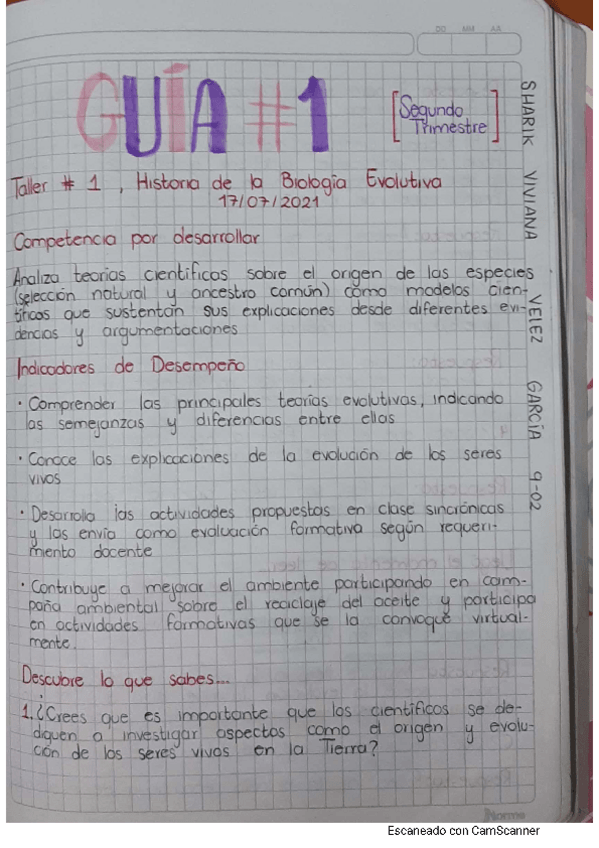 DD MM AA
GUÍA #1
[Segundo
Trimestre]
Taller # 1 , Historia de la Biología Evolutiva
17/07/2021
Competencia por desarrollar
Analiza teorías científicas sobre el origen de las especies
(selección natural y ancestro común) como modelos cien-
tíficos que sustentan sus explicaciones desde diferentes evi-
dencias y argumentaciones
Indicadores de Desempeño
· Comprender las principales teorías evolutivas, indicando
las semejanzas y diferencias entre ellas
· Conoce las explicaciones de la evolución de los seres
vivos
· Desarrolla las actividades propuestas en clase sincrónicas
y las envía como evaluación formativa según requeri-
miento docente
· Contribuye a mejorar el ambiente participando en cam-
paña ambiental sobre el reciclaje del aceite y participa
en actividades formativas que se la convoque virtual-
mente.
Descubre lo que sabes...
1. ¿Crees que es importante que los científicos se de-
diquen a investigar aspectos como el origen y evolu-
ción de los seres vivos en la Tierra?
SHARIK VIVIANA VELEZ GARCÍA 9-02
Norma
Escaneado con CamScanner